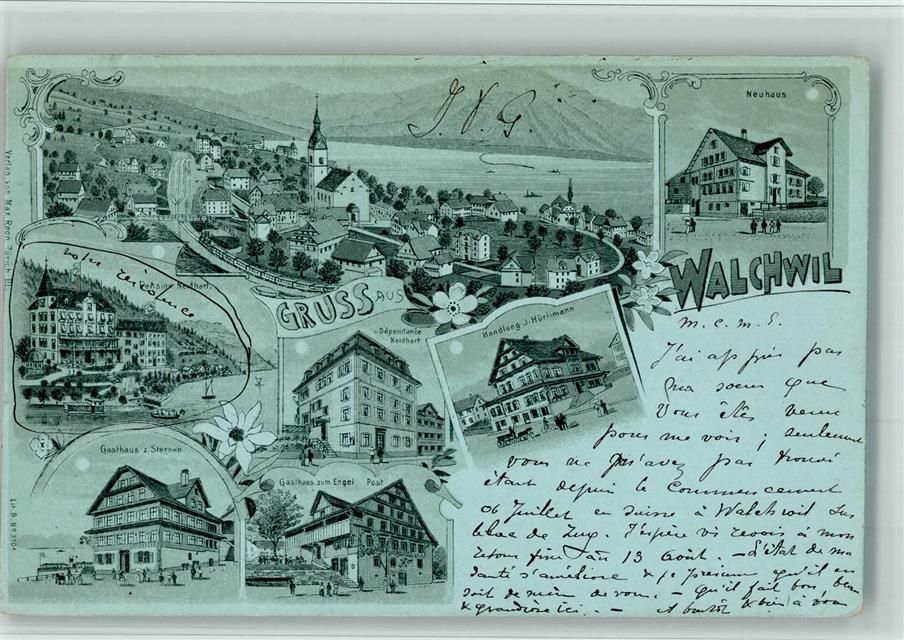 J. V. G.
Neuhaus
Verlag von Max Roon, Zürich III.
votre résidence
Pension Neidhart
GRUSS AUS
WALCHWIL
Dépendance
Neidhart
Handlung J. Hürlimann
Gasthaus z. Sternen
Gasthaus zum Engel Post
Lit. B. No 3104
M. C. M. E.
J'ai appris par
ma soeur que
vous êtes venu
pour me voir ; seulement
vous ne m'avez pas trouvé
étant depuis le commencement
de Juillet en Suisse à Walchwil sur
le lac de Zug. J'espère vs revoir à mon
retour fin au 13 Août. – L'état de ma
santé s'améliore & je présume qu'il en
soit de même de vous. – qu'il fait bon, beau
& grandiose ici. – A bientôt & bien à vous